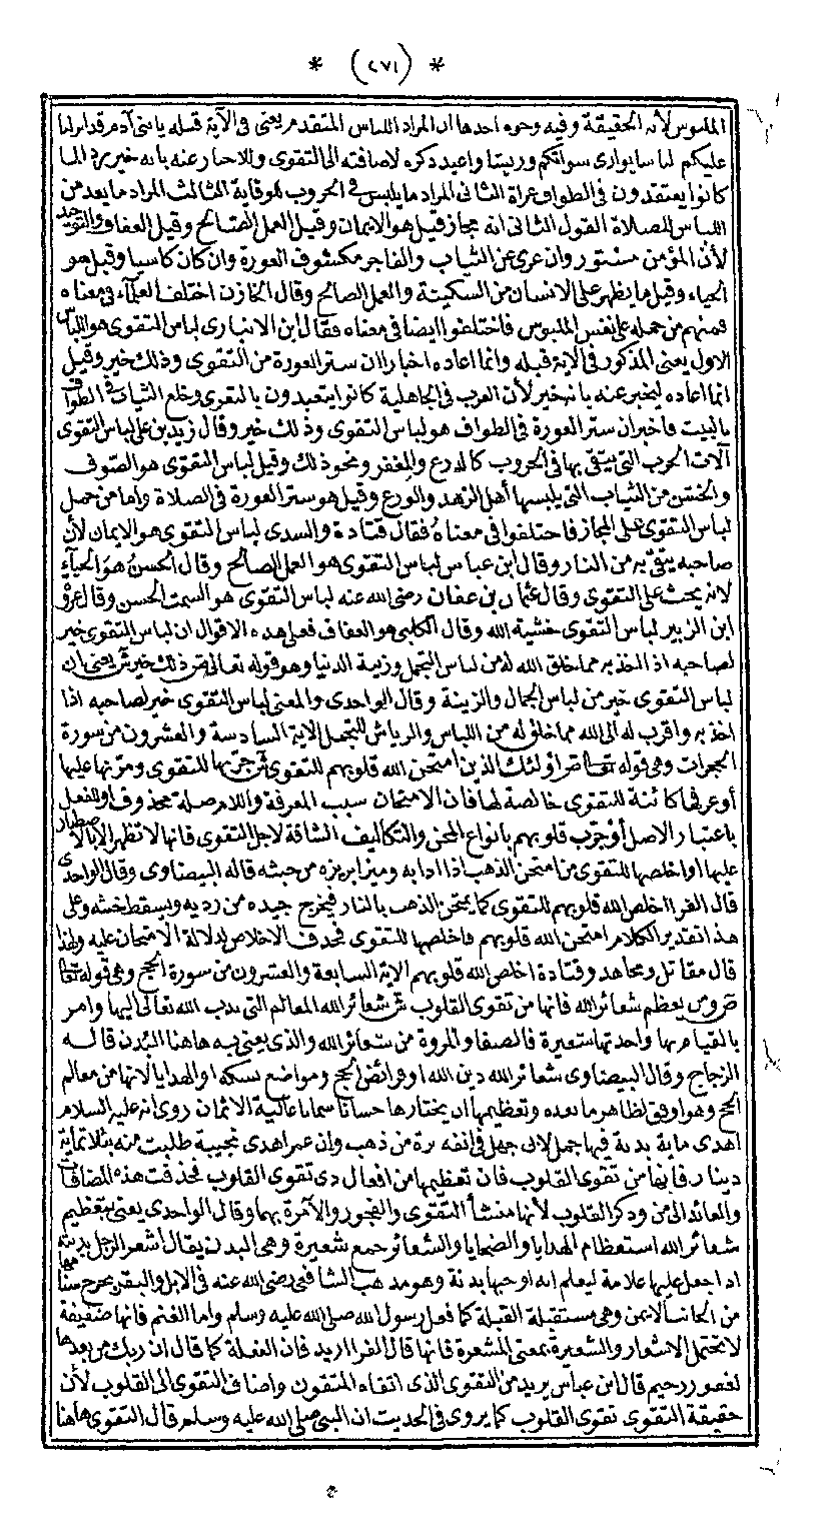 * (٢٧١) *
الملبوس لأنه الحقيقة وفيه وجوه احدها ان المراد اللباس المتقدم يعنى فى الآية قبله يا بنى آدم قد انزلنا
عليكم لباسا يوارى سوآتكم وريشا واعيد ذكره لاضافته الى التقوى وللاخبار عنه بانه خير يرد الما
كانوا يعتقدون فى الطواف عراة الثانى المراد ما يلبس فى الحروب للوقاية الثالث المراد ما يعد من
اللباس للصلاة القول الثانى انه مجاز قيل هو الايمان وقيل العمل الصالح وقيل العفاف والتوحيد
لأن المؤمن مستور وان عرى عن الثياب والفاجر مكشوف العورة وان كان كاسيا وقيل هو
الحياء وقيل ما يظهر على الانسان من السكينة والعمل الصالح وقال الخازن اختلف العلمآء فى معناه
فمنهم من حمله على نفس الملبوس فاختلفوا ايضا فى معناه فقال ابن الانبارى لباس التقوى هو اللباس
الاول يعنى المذكور فى الآية قبله وانما اعاده اخبارا ان ستر العورة من التقوى وذلك خير وقيل
انما اعاده ليخبر عنه بانه خير لأن العرب فى الجاهلية كانوا يتعبدون بالتعرى وخلع الثياب فى الطواف
بالبيت فاخبر ان ستر العورة فى الطواف هو لباس التقوى وذلك خير وقال زيد بن على لباس التقوى
آلات الحرب التى يتقى بها فى الحروب كالدرع والمغفر ونحو ذلك وقيل لباس التقوى هو الصوف
والخشن من الثياب التى يلبسها أهل الزهد والورع وقيل هو ستر العورة فى الصلاة واما من حمل
لباس التقوى على المجاز فاختلفوا فى معناه فقال قتادة والسدى لباس التقوى هو الايمان لأن
صاحبه يتقى به من النار وقال ابن عباس لباس التقوى هو العمل الصالح وقال الحسن هو الحيآء
لانه يحث على التقوى وقال عثمان بن عفان رضى الله عنه لباس التقوى هو السمت الحسن وقال عروة
ابن الزبير لباس التقوى خشية الله وقال الكلبى هو العفاف فعلى هذه الاقوال ان لباس التقوى خير
لصاحبه اذا اخذ به مما خلق الله له من لباس التجمل وزينة الدنيا وهو قوله تعالى ص ذلك خير ش يعنى ان
لباس التقوى خير من لباس الجمال والزينة وقال الواحدى والمعنى لباس التقوى خير لصاحبه اذا
اخذ به واقرب له الى الله مما خلق له من اللباس والرياش للتجمل الآية السادسة والعشرون من سورة
الحجرات وهى قوله تعالى ص اولئك الذين امتحن الله قلوبهم للتقوى ش جربها للتقوى ومرنها عليها
أو عرفها كائنة للتقوى خالصة لها فان الامتحان سبب المعرفة واللام صلة محذوف او للفعل
باعتبار الاصل أو جرب قلوبهم بانواع المحن والتكاليف الشاقة لاجل التقوى فانها لا تظهر الا بالاصطبار
عليها او اخلصها للتقوى من امتحن الذهب اذا اذابه وميز ابريزه من خبثه قاله البيضاوى وقال الواحدى
قال الفرا اخلص الله قلوبهم للتقوى كما يمتحن الذهب بالنار فيخرج جيده من رديه ويسقط خبثه وعلى
هذا تقدير الكلام امتحن الله قلوبهم فاخلصها للتقوى فحذف الاخلاص لدلالة الامتحان عليه ولهذا
قال مقاتل ومجاهد وقتادة اخلص الله قلوبهم الآية السابعة والعشرون من سورة الحج وهى قوله تعالى
ص ومن يعظم شعائر الله فانها من تقوى القلوب ش شعائر الله المعالم التى ندب الله تعالى اليها وامر
بالقيام بها واحدتها شعيرة فالصفا والمروة من شعائر الله والذى يعنى به هاهنا البدن قاله
الزجاج وقال البيضاوى شعائر الله دين الله او فرائض الحج ومواضع نسكه او الهدايا لانها من معالم
الحج وهو اوفق لظاهر ما بعده وتعظيمها ان يختارها حسانا سمانا غالية الاثمان روى انه عليه السلام
اهدى ماية بدنة فيها جمل لابى جهل فى انفه برة من ذهب وان عمر اهدى نجيبة طلبت منه بثلاثماية
دينار فانها من تقوى القلوب فان تعظيمها من افعال ذى تقوى القلوب فحذفت هذه المضافات
والعائد الى من وذكر القلوب لأنها منشأ التقوى والفجور والآمرة بهما وقال الواحدى يعنى بتعظيم
شعائر الله استعظام الهدايا والضحايا والشعائر جمع شعيرة وهى البدن يقال اشعر الرجل بدنته
اذا جعل عليها علامة ليعلم انه اوجبها بدنة وهو مذهب الشافعى رضى الله عنه فى الابل والبقر يجرح سنامها
من الجانب الايمن وهى مستقبلة القبلة كما فعل رسول الله صلى الله عليه وسلم واما الغنم فانها ضعيفة
لا تحتمل الاشعار والشعيرة بمعنى المشعرة فانها قال الفرا اريد فان الفعلة كما قال ان ربك من بعدها
لغفور رحيم قال ابن عباس يريد من التقوى الذى اتقاه المتقون واضاف التقوى الى القلوب لأن
حقيقة التقوى تقوى القلوب كما يروى فى الحديث ان النبى صلى الله عليه وسلم قال التقوى هاهنا